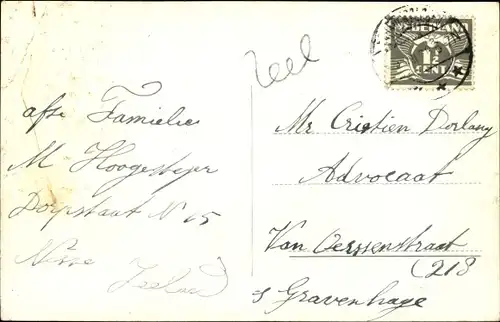 Zeel
afse Familie
M Hoogesteyer
Dorpstraat N 15
Nisse Zeeland
NEDERLAND
1½
CENT
Mr Cristien Dorlany
Advocaat
Van Oerssenstraat
(218
s Gravenhage